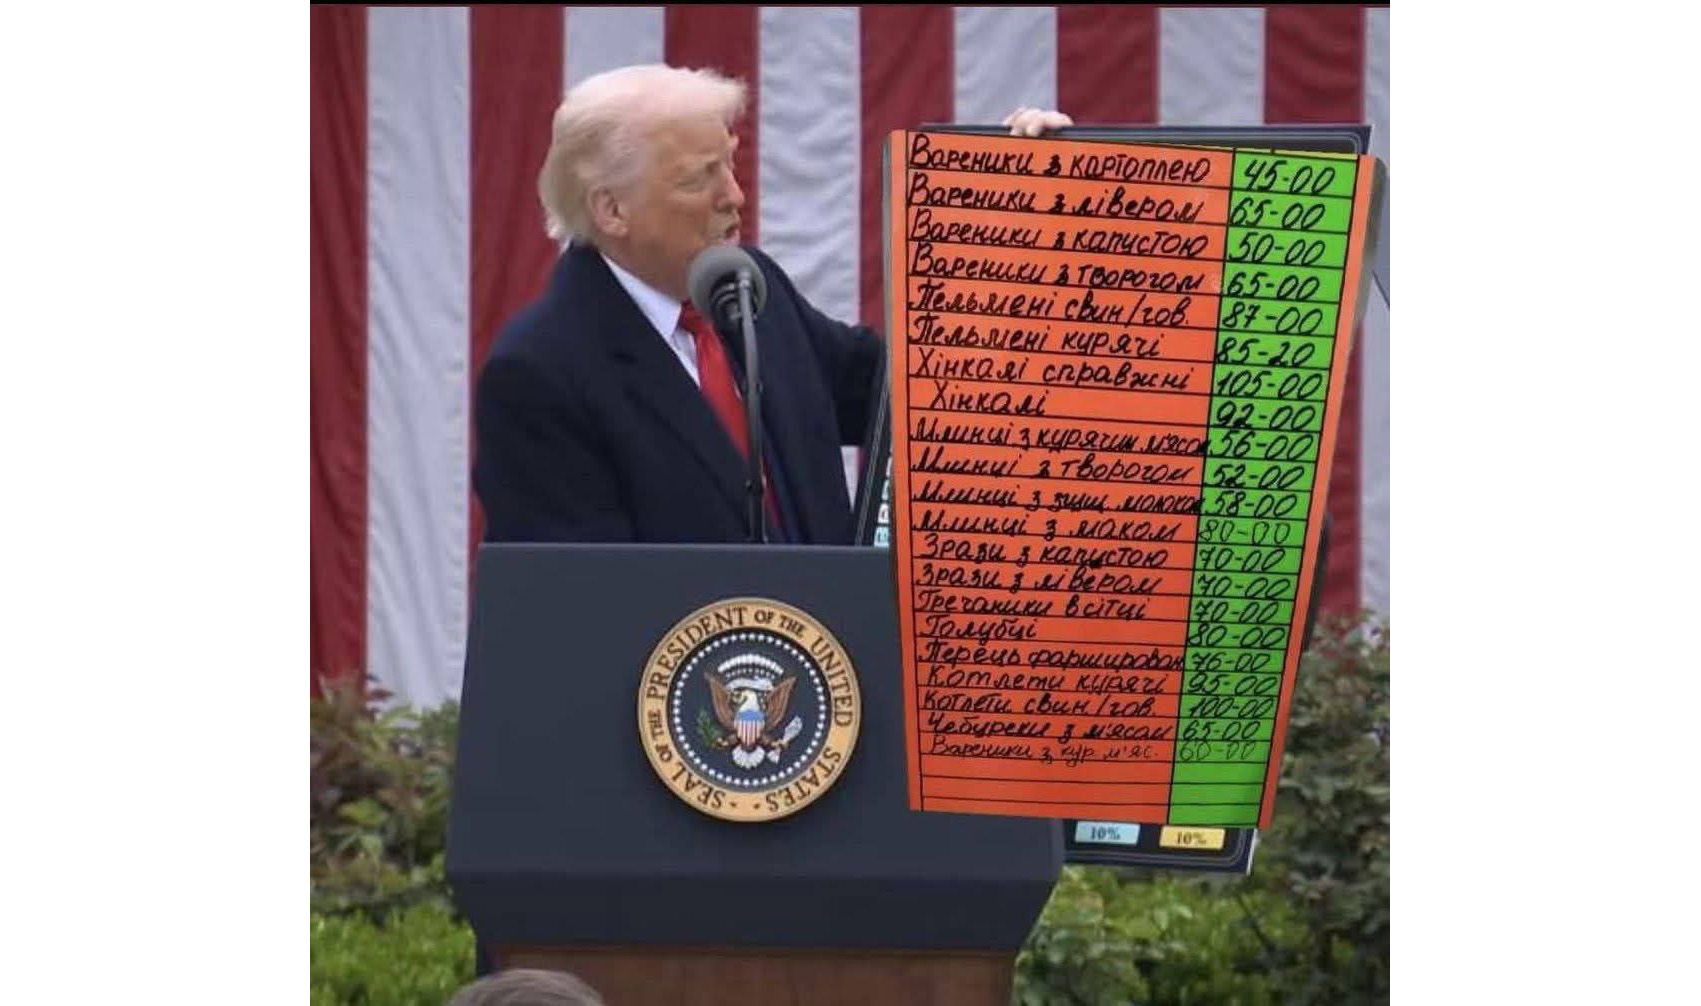 Вареники з картоплею 45-00
Вареники з лівером 65-00
Вареники з капустою 50-00
Вареники з творогом 65-00
Пельмені свин/гов. 87-00
Пельмені курячі 85-20
Хінкалі справжні 105-00
Хінкалі 92-00
Млинці з курячим м'ясом 56-00
Млинці з творогом 52-00
Млинці з згущ молоком 58-00
Млинці з маком 80-00
Зрази з капустою 70-00
Зрази з лівером 70-00
Гречаники в сітці 70-00
Голубці 80-00
Перець фарширован 76-00
Котлети курячі 95-00
Котлети свин/гов. 100-00
Чебуреки з м'ясом 65-00
Вареники з кур м'яс. 60-00
10% 10%
SEAL OF THE PRESIDENT OF THE UNITED STATES